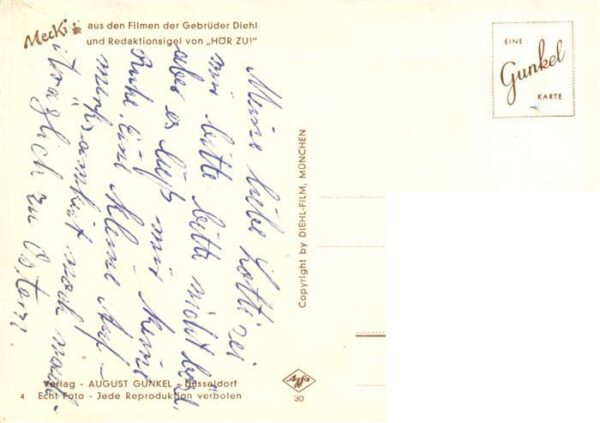 Mecki aus den Filmen der Gebrüder Diehl
und Redaktionsigel von „HÖR ZU!"
EINE
Gunkel
KARTE
Meine liebe Lotti sei
mir bitte bitte nicht böse,
aber es ließ mir keine
Ruhe. Eine kleine Auf-
merksamkeit noch nach-
träglich zu Ostern.
Copyright by DIEHL-FILM, MÜNCHEN
Verlag - AUGUST GUNKEL - Düsseldorf
4 Echt Foto - Jede Reproduktion verboten
Agfa
30